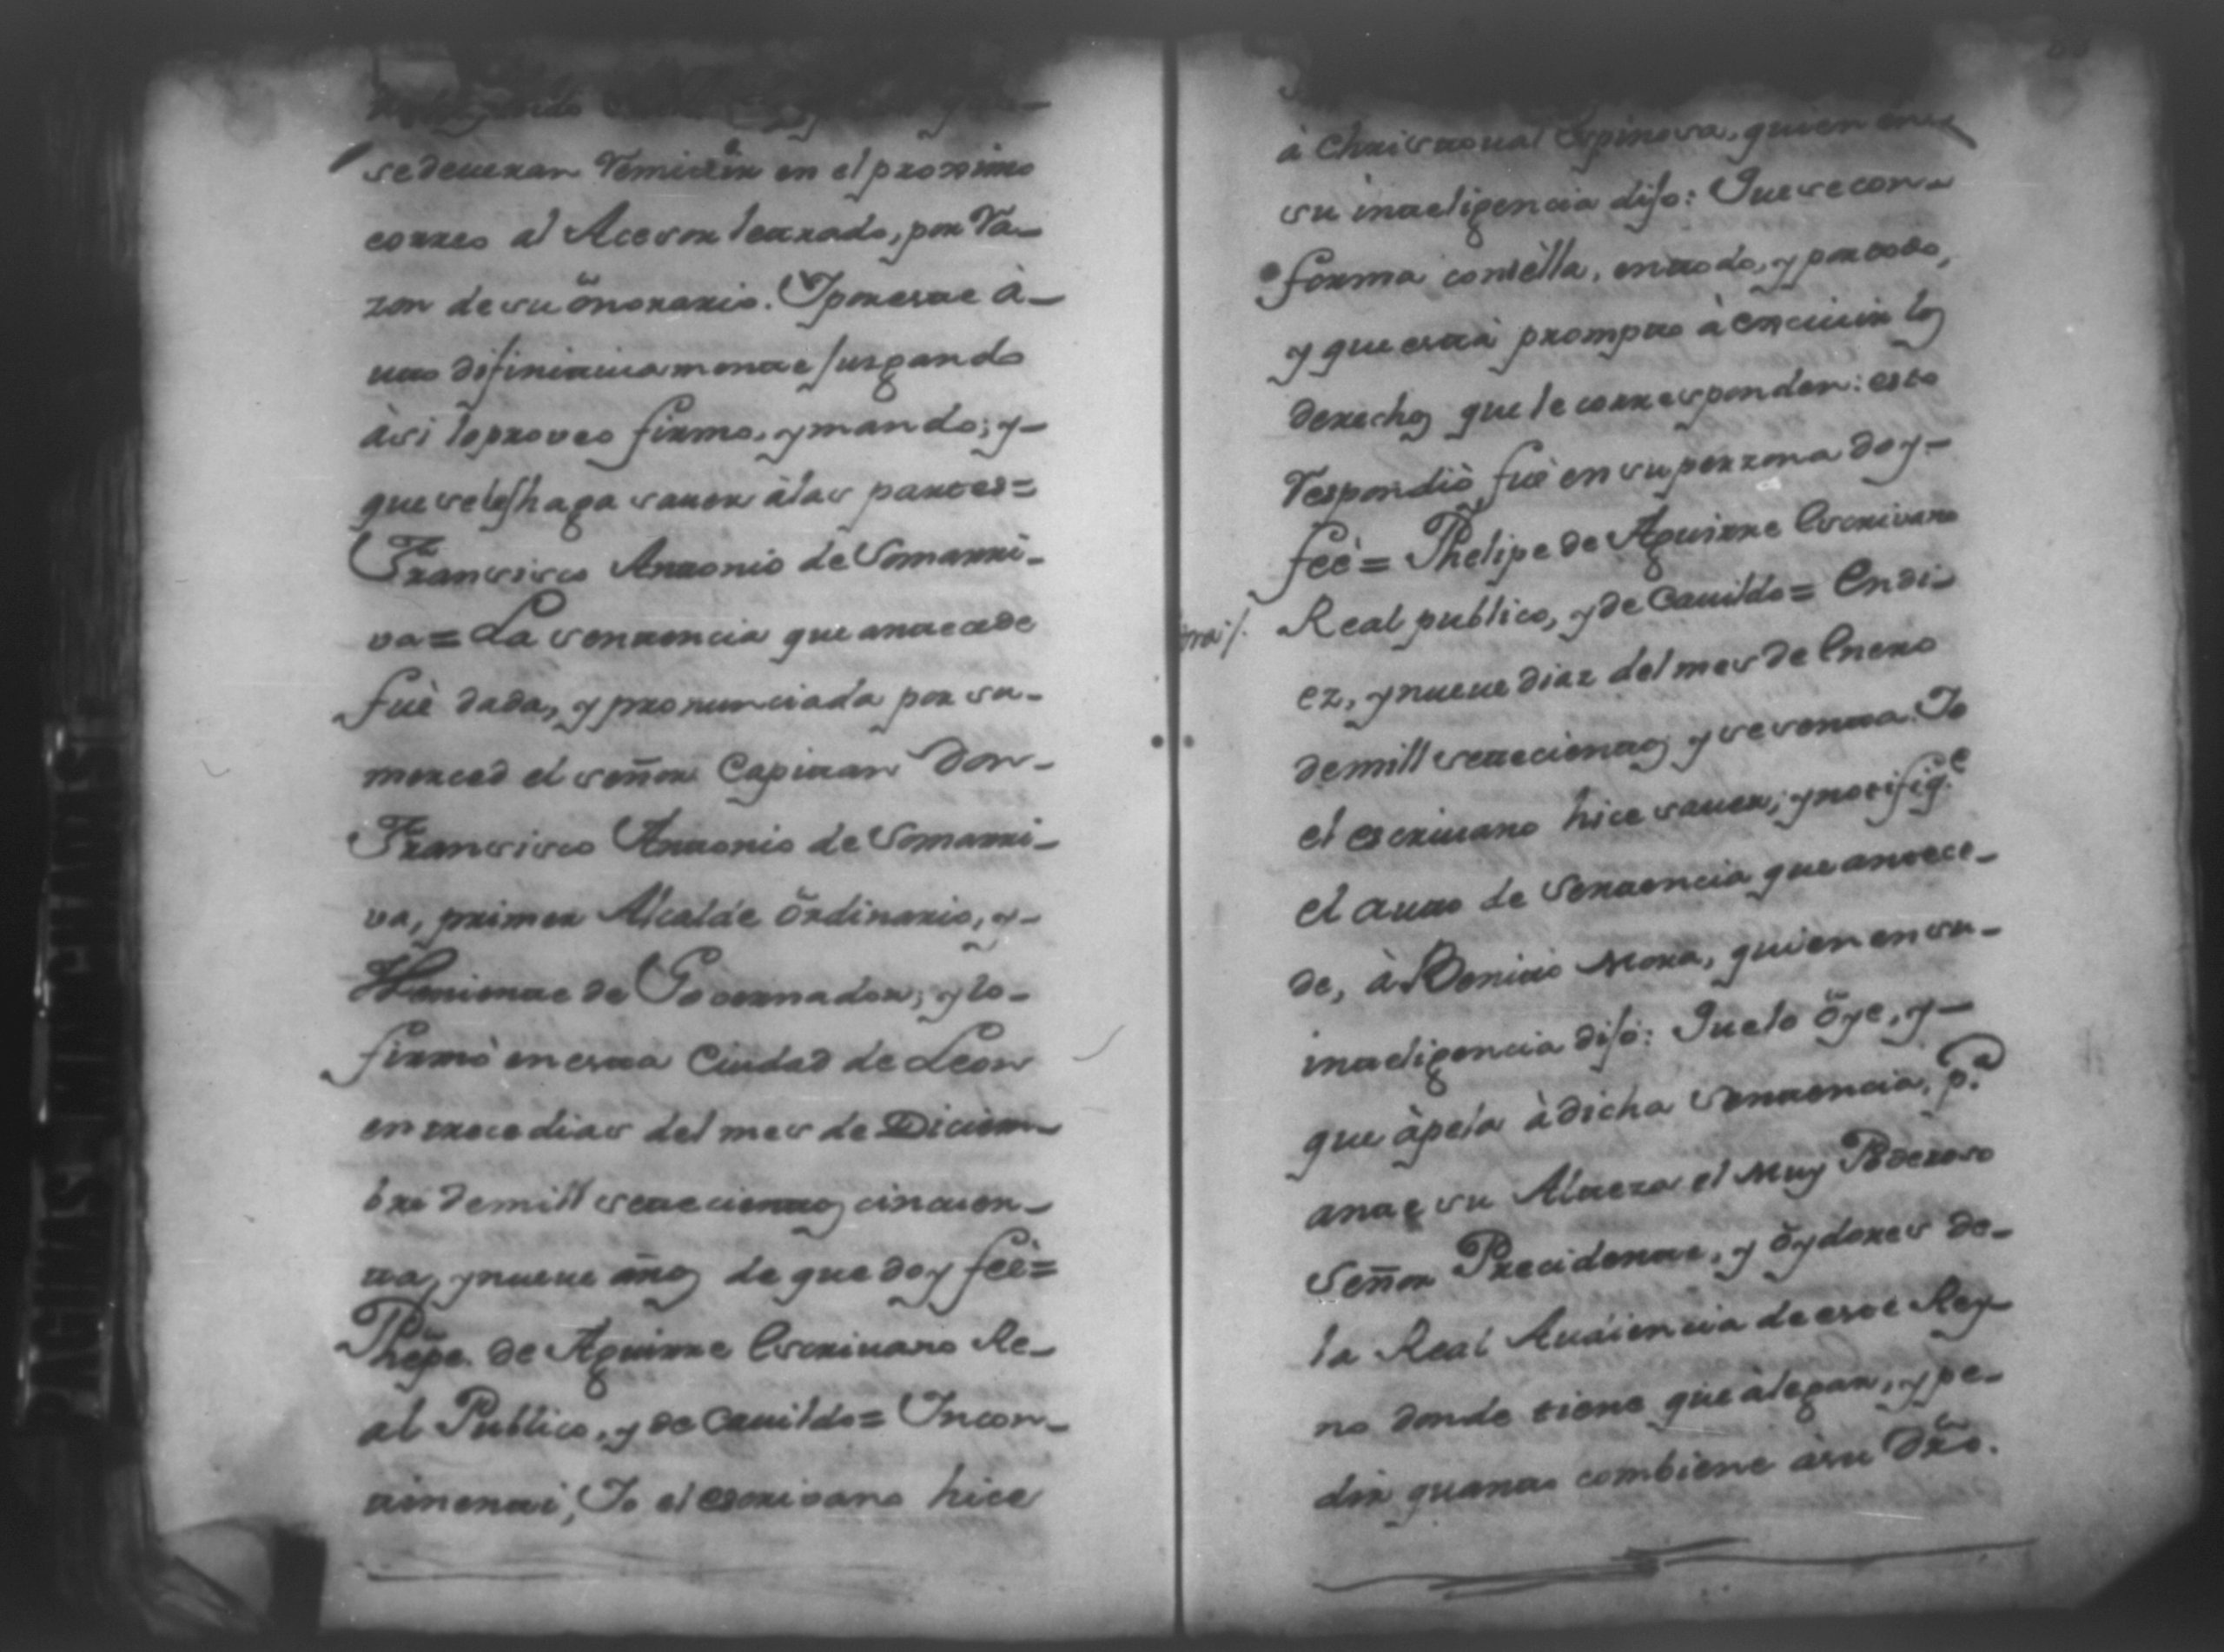 se deveran remitir en el proximo
correo al Acesor letrado, por ra-
zon de su onorario. Y por este à-
uto difinitivamente jusgando
àsi lo proveo firmo, y mando; y-
que se les haga saver à las partes=
Francisco Antonio de Somarri-
va= La sentencia que antecede
fuè dada, y pronunciada por su-
merced el señor Capitan Don-
Francisco Antonio de Somarri-
va, primer Alcalde ordinario, y-
Theniente de Governador; y lo-
firmò en esta Ciudad de Leon
en trece dias del mes de Diciem-
bre de mill setecientos cinquen-
ta, y nueve años de que doy feè=
Phepe. de Aguirre Escrivano Re-
al Publico, y de Cavildo= Incon-
tinenti, Yo el escrivano hice
à Christoval Espinosa, quien en-
su inteligencia dijo: Que se con-
forma con ella, en todo, y por todo,
y que està prompto à exivir los
derechos que le corresponden: esto
respondiò fuè en su perzona doy-
feè= Phelipe de Aguirre Escrivano
Real publico, y de Cavildo= En di-
ez, y nueve diaz del mes de Enero
de mill setecientos y sesenta. Yo
el escrivano hice saver, y notifiqe
el auto de Sentencia que antece-
de, à Benito Mora, quien en su-
inteligencia dijo: Que lo oye, y-
que àpela à dicha Sentencia, pa
ante su Alteza el Muy Poderoso
Señor Precidente, y oydores de-
la Real Audiencia de este Rey-
no donde tiene que àlegar, y pe-
dir quanto combiene à su dro.